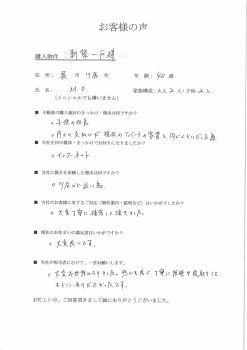 お客様の声
購入物件 新築一戸建
住所：呉市 町 年齢：40歳
氏名：M.O 家族構成：大人2人・子供2人
(イニシャルでも構いません)
■ 不動産の購入時のきっかけ・理由は何ですか？
。子供の成長
。月々の支払いが現在のアパートの家賃と同じくらいだった為
■ 当社を何の媒体・きっかけでお知りになりましたか？
。インターネット
■ 当社に仲介を依頼した理由は何ですか？
に近い為。
■ 当社のお客様に対するご対応（物件案内・説明など）はいかがでしたか？
。大変丁寧に接客して頂きました。
■ 現在のお住まいの満足度はいかがですか？
。大変良いです。
■ 当社の担当者にかけて、一言お願いします。
。大変お世話になりました。 丁寧に説明や段取りして
もらいありがたかったです。
お忙しい中、ご回答頂きまして誠にありがとうございました。